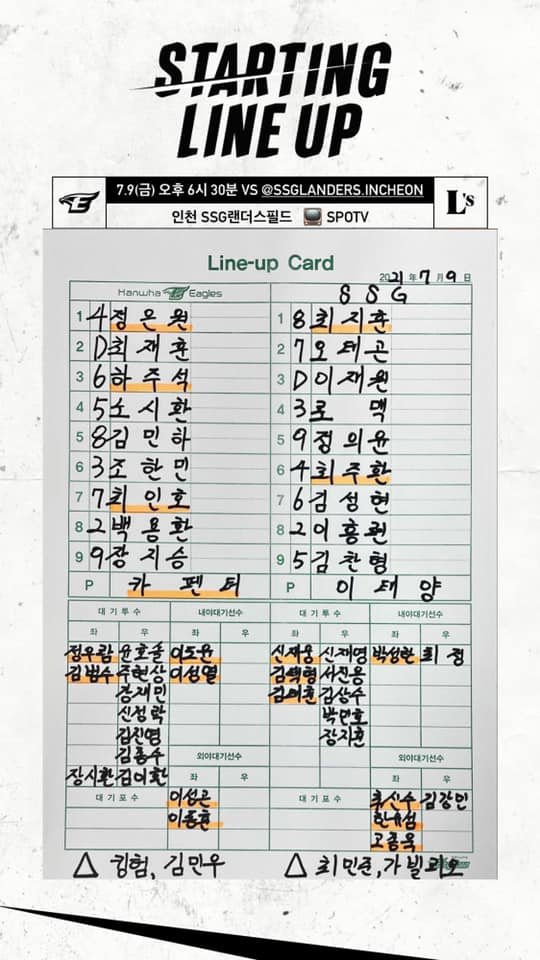 STARTING
LINE UP
7.9(금) 오후 6시 30분 VS @SSGLANDERS.INCHEON
인천 SSG랜더스필드 SPOTV
L's
Line-up Card
2021年 7月 9日
Hanwha Eagles
SSG
1 4 정은원
1 8 최지훈
2 D 최재훈
2 7 오태곤
3 6 하주석
3 D 이재원
4 5 노시환
4 3 로맥
5 8 김민하
5 9 정의윤
6 3 조한민
6 4 최주환
7 7 최인호
7 6 김성현
8 2 백용환
8 2 이흥련
9 9 장지승
9 5 김찬형
P 카펜터
P 이태양
대기투수 내야대기선수
대기투수 내야대기선수
좌 우 좌 우
좌 우 좌 우
정우람 윤호솔 이도윤
신재웅 신재영 박성한 최정
김범수 주현상 이성열
김택형 서진용
강재민
김태훈 김상수
신정락
박민호
김진영
장지훈
김종수
외야대기선수
외야대기선수
장시환 김이환 좌 우
좌 우
대기포수 이성곤
대기포수 추신수 김강민
이동훈
한유섬
고종욱
△ 킹험, 김민우
△ 최민준, 가빌리오